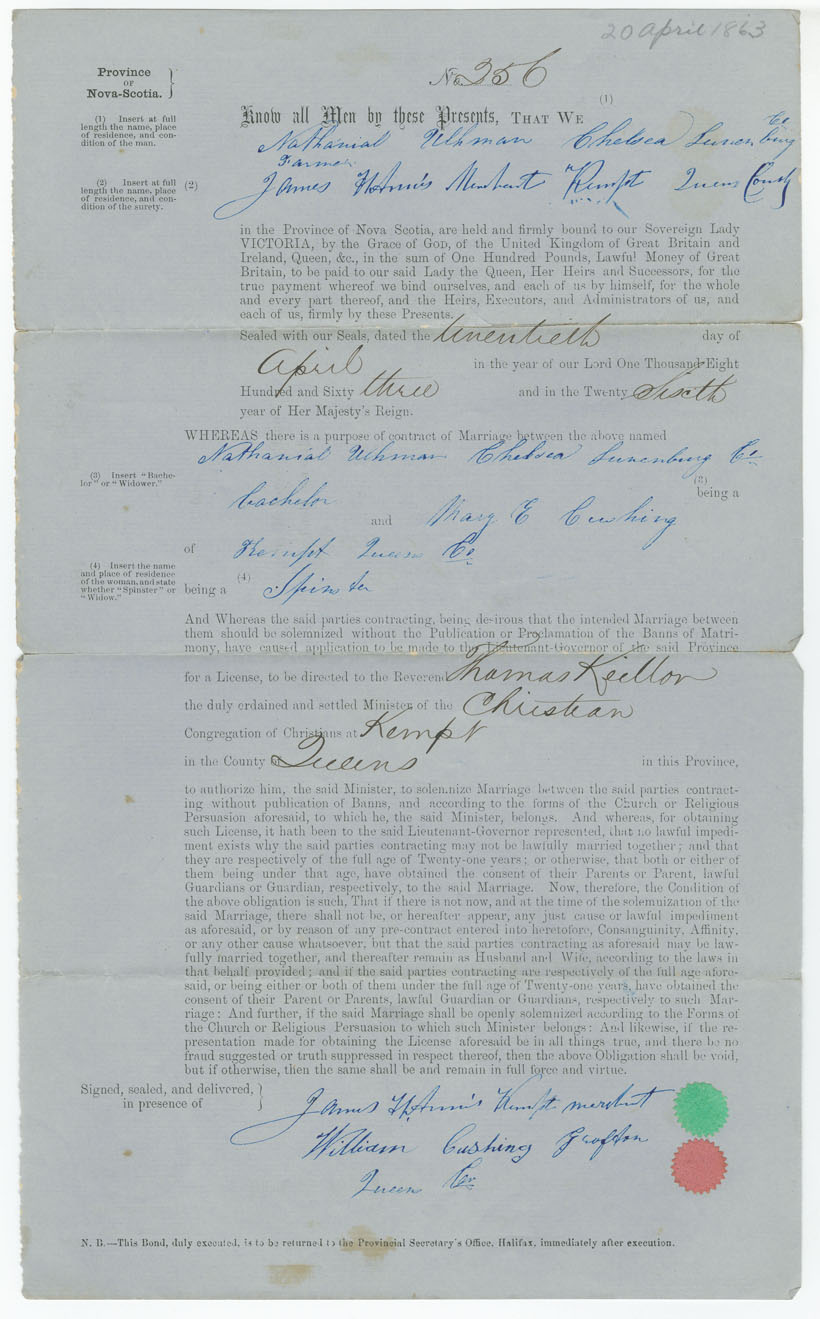 20 April 1863
Province
OF
Nova-Scotia.
No. 256
(1)
Know all Men by these Presents, THAT WE
(1) Insert at full
length the name, place
of residence, and con-
dition of the man.
Nathanial Uhman Chelsea Lunenburg Co
Farmer
(2) Insert at full
length the name, place
of residence, and con-
dition of the surety.
(2) James Merchant Kempt Queens County
in the Province of Nova Scotia, are held and firmly bound to our Sovereign Lady
VICTORIA, by the Grace of GOD, of the United Kingdom of Great Britain and
Ireland, Queen, &c., in the sum of One Hundred Pounds, Lawful Money of Great
Britain, to be paid to our said Lady the Queen, Her Heirs and Successors, for the
true payment whereof we bind ourselves, and each of us by himself, for the whole
and every part thereof, and the Heirs, Executors, and Administrators of us, and
each of us, firmly by these Presents.
Sealed with our Seals, dated the twentieth day of
April in the year of our Lord One Thousand Eight
Hundred and Sixty three and in the Twenty Sixth
year of Her Majesty's Reign.
WHEREAS there is a purpose of contract of Marriage between the above named
Nathanial Uhman Chelsea Lunenburg Co
(3) Insert "Bache-
lor" or "Widower."
(3)
being a
bachelor and Mary E Cushing
of Kempt Queens Co
(4) Insert the name
and place of residence
of the woman, and state
whether "Spinster" or
"Widow."
(4)
being a Spinster
And Whereas the said parties contracting, being desirous that the intended Marriage between
them should be solemnized without the Publication or Proclamation of the Banns of Matri-
mony, have caused application to be made to the Lieutenant-Governor of the said Province
for a License, to be directed to the Reverend Thomas Keillor
the duly ordained and settled Minister of the Christian
Congregation of Christians at Kempt
in the County of Queens in this Province,
to authorize him, the said Minister, to solemnize Marriage between the said parties contract-
ing without publication of Banns, and according to the forms of the Church or Religious
Persuasion aforesaid, to which he, the said Minister, belongs. And whereas, for obtaining
such License, it hath been to the said Lieutenant-Governor represented, that no lawful impedi-
ment exists why the said parties contracting may not be lawfully married together; and that
they are respectively of the full age of Twenty-one years; or otherwise, that both or either of
them being under that age, have obtained the consent of their Parents or Parent, lawful
Guardians or Guardian, respectively, to the said Marriage. Now, therefore, the Condition of
the above obligation is such, That if there is not now, and at the time of the solemnization of the
said Marriage, there shall not be, or hereafter appear, any just cause or lawful impediment
as aforesaid, or by reason of any pre-contract entered into heretofore, Consanguinity, Affinity,
or any other cause whatsoever, but that the said parties contracting as aforesaid may be law-
fully married together, and thereafter remain as Husband and Wife, according to the laws in
that behalf provided; and if the said parties contracting are respectively of the full age afore-
said, or being either or both of them under the full age of Twenty-one years, have obtained the
consent of their Parent or Parents, lawful Guardian or Guardians, respectively to such Mar-
riage: And further, if the said Marriage shall be openly solemnized according to the Forms of
the Church or Religious Persuasion to which such Minister belongs: And likewise, if the re-
presentation made for obtaining the License aforesaid be in all things true, and there be no
fraud suggested or truth suppressed in respect thereof, then the above Obligation shall be void,
but if otherwise, then the same shall be and remain in full force and virtue.
Signed, sealed, and delivered,
in presence of
James Kempt merchant
William Cushing Grafton
Queen Co
N. B.—This Bond, duly executed, is to be returned to the Provincial Secretary's Office, Halifax, immediately after execution.